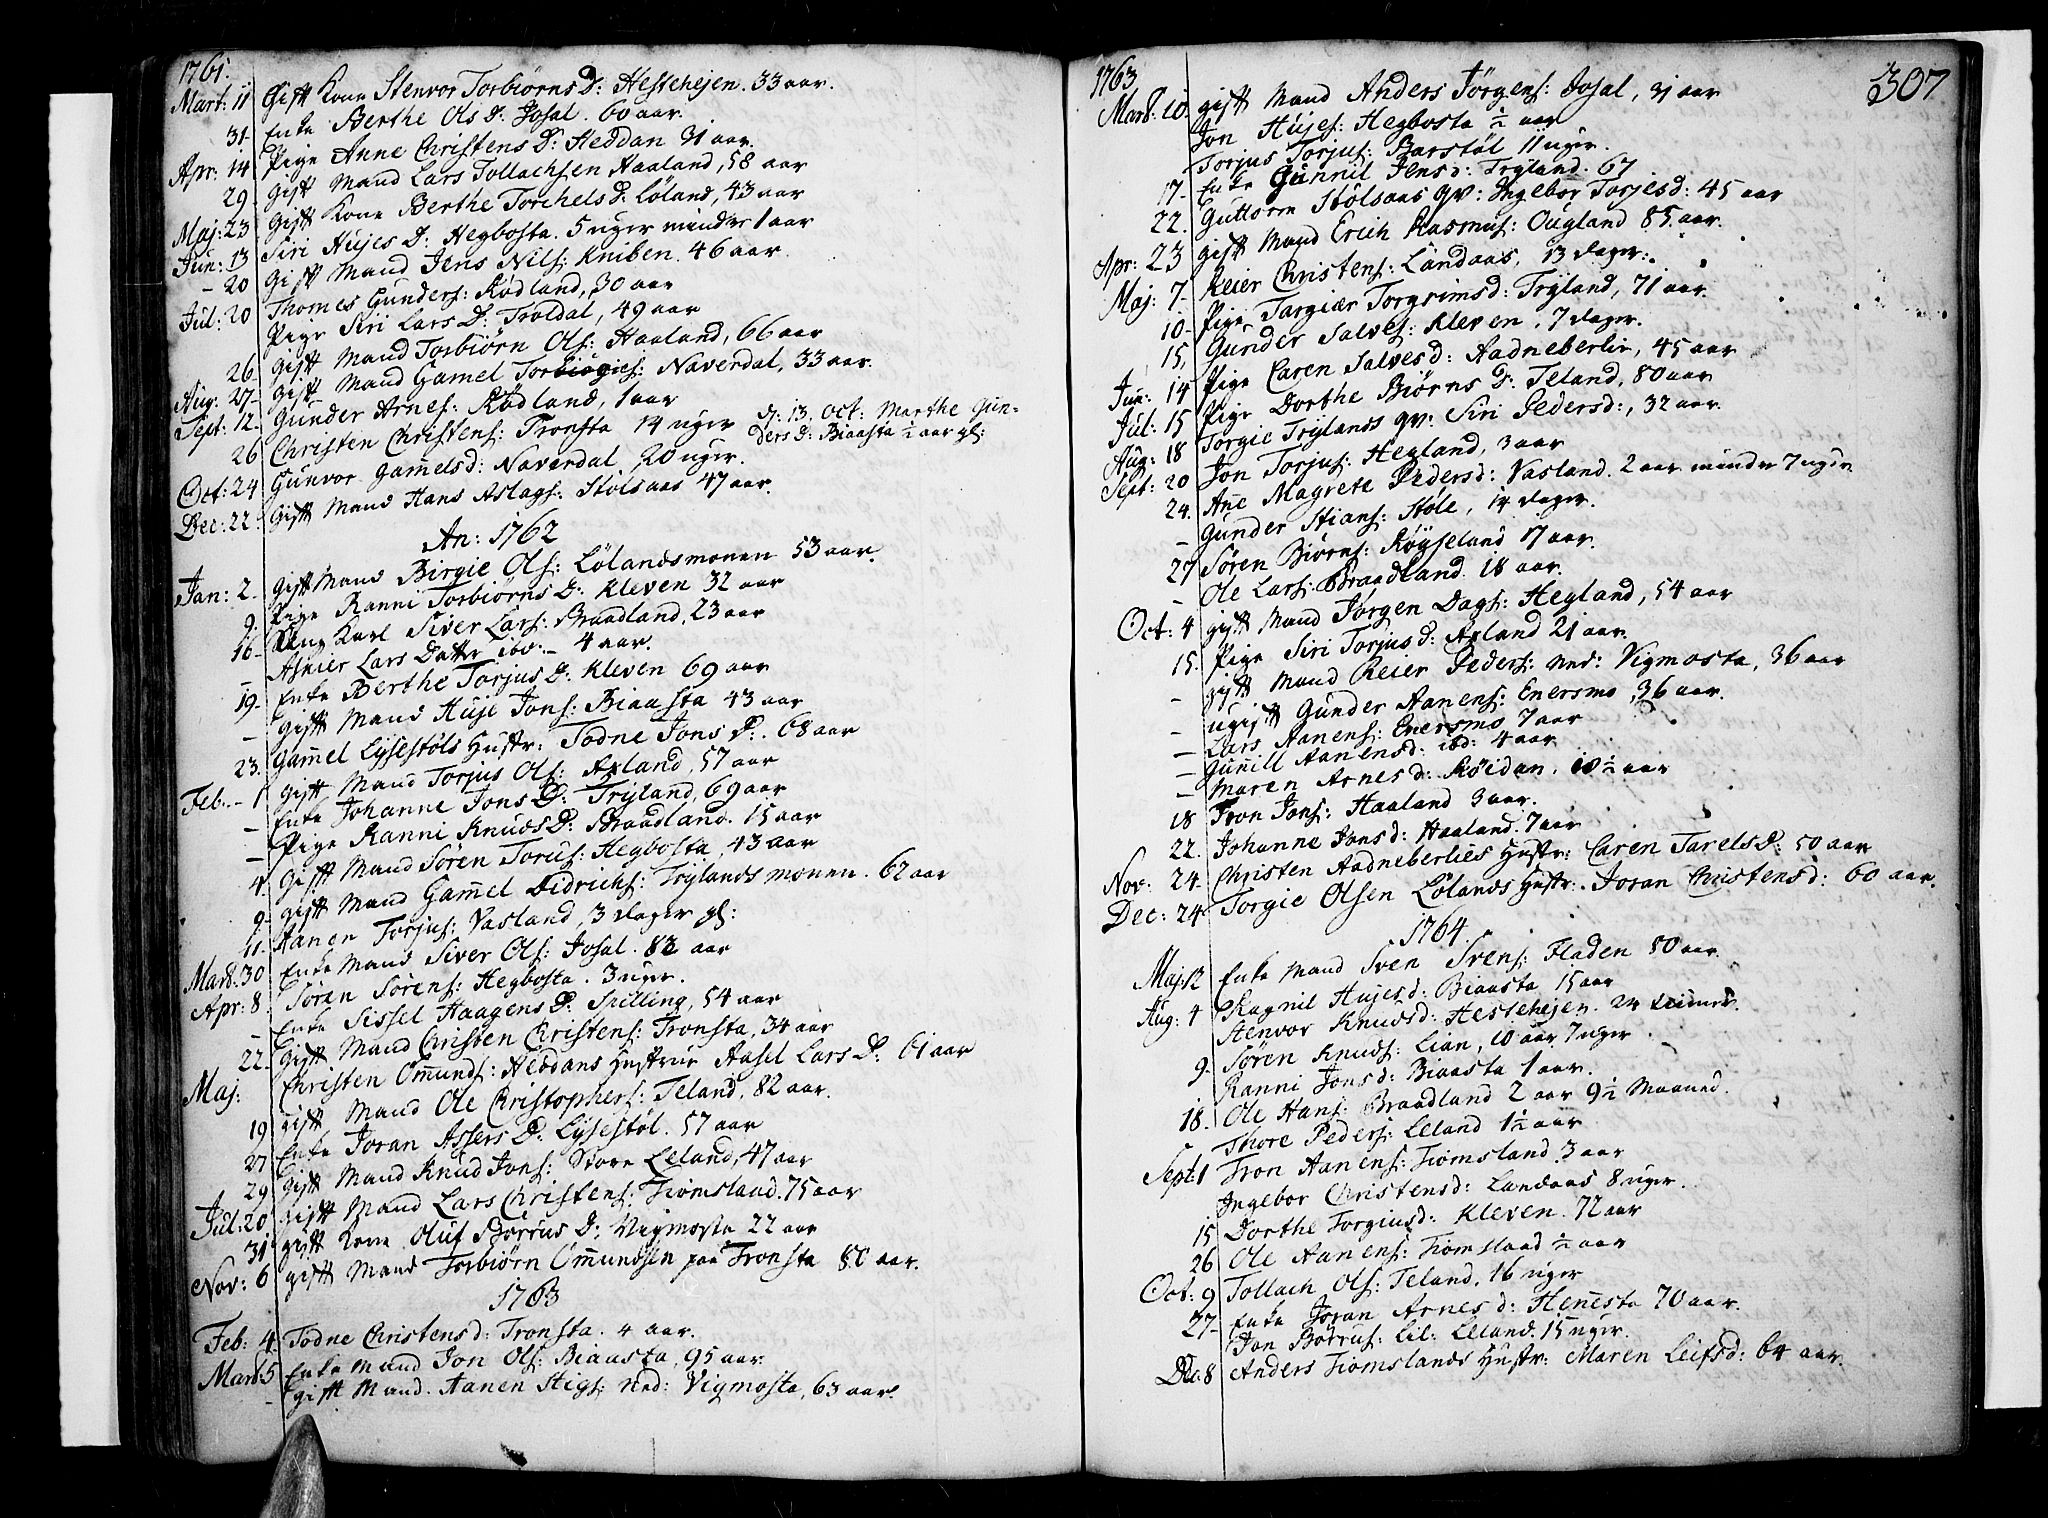 1761.
Mart: 11 Gift Kone Stenvor Torbiørns D: Hestehejen. 33 aar.
31. Enke Berthe Ols D: Josal. 60 aar.
Apr: 14 Pige Anne Christens D: Heddan 31 aar.
29. Gift Mand Lars Tollachsen Haaland, 58 aar
Maj: 23 Gift Kone Berthe Torchels D: Löland, 43 aar
Jun: 13 Siri Hujes D: Hegbosta. 5 uger minder 1 aar
- 20 Gift Mand Jens Nils: Kniben. 46 aar.
Jul: 20 Thomes Gunders: Rödland, 30 aar
Pige Siri Lars D: Troldal, 49 aar
26. Gift Mand Torbiörn Ols: Haaland, 66 aar
Aug: 27- Gift Mand Gamel Torbiögies: Naverdal, 33 aar.
Sept: 12. Gunder Arnes: Rödland, 1 aar
26 Christen Christens: Tronsta 14 uger
d: 13. Oct: Marthe Gun-
ders D: Biaasta ½ aar gl:
Oct: 24 Gunvor Gam̄elsd: Naverdal, 20 uger.
Dec: 22. Gift Mand Hans Aslags: Stölsaas 47 aar.
An: 1762
Jan: 2. Gift Mand Birgie Ols: Lölandsmonen 53 aar.
9. Pige Ranni Torbiörns D: Kleven 32 aar
16- Ung Karl Siver Lars: Braadland, 23 aar
- Asnier Lars Datter ibd:- 4 aar.
19- Enke Berthe Torjus D: Kleven 69 aar
- Gift Mand Huje Jons: Biaasta 43 aar
23. Gam̄el Lysestöls Hustr: Todne Jons D:. 68 aar
Feb. - 1 Gift Mand Torjus Ols: Axland, 57 aar
- Enke Johanne Jons D: Tryland, 69 aar
- Pige Ranni Knuds D: Braadland. 15 aar
4. Gift Mand Sören Torus: Hegbosta, 43 aar
9- Gift Mand Gam̄el Didrichs: Trylands monen. 62 aar
11. Aanen Torjus: Vasland, 3 dager gl:
Mart. 30 Enke Mand Siver Ols: Josal. 83 aar
Apr: 8 Sören Sörens: Hegbosta. 3 uger.
- Enke Sissel Haagens D: Spilling, 54 aar
22. Gift Mand Christen Christens: Tronsta, 34 aar
Maj: Christen Om̄unds: Heddans Hustrue Aasel Lars D: 61 aar
19 Gift Mand Ole Christophers: Teland, 82 aar.
27 Enke Joran Assers D: Lysestöl. 57 aar
29 Gift Mand Knud Jons: Store Leland, 47 aar
Jul: 20 Gift Mand Lars Christens: Tiömsland. 75 aar
31 Gift Kone Oluf Börrus D: Vigmosta 22 aar
Nov: 6 Gift Mand Torbiörn Om̄undsen paa Tronsta 80 aar.
1763
Feb: 4. Todne Christensd: Tronsta. 4 aar.
Mart: 5 Enke Mand Jon Ols: Biaasta, 95 aar:
- Gift Mand. Aanen Stigs: Ned: Vigmosta, 63 aar.
1763
307
Mart. 10. Gift Mand Anders Jörgens: Josal, 31 aar
Jon Hujes: Hegbosta ½ aar
Torjus Torjus: Barstöl 11 uger.
17- Enke Gunnil Jensd: Tryland. 67
22. Guttorm Stölsaas qv: Ingebor Torjesd: 45 aar
Apr: 23 Gift Mand Erich Rasmus: Ougland 85. aar.
Maj: 7- Reier Christens: Landaas, 13 dager.
10- Pige Targiær Torgrimsd: Tryland, 71 aar.
15, Gunder Salves: Kleven, 7 dager.
Jun: 14 Pige Caren Salvesd: Aadneberlie, 45 aar
Jul: 15 Pige Dorthe Biörns D: Teland, 80 aar
Aug: 18 Torgie Trylands qv: Siri Pedersd:, 32 aar.
Sept: 20 Jon Torjus: Hegland, 3 aar
24. An̄e Magrete Pedersd: Vasland. 2 aar minder 7 uger
- Gunder Stians: Stöle, 14 dager.
27 Sören Biörns: Röyseland 17 aar.
- Ole Lars: Braadland. 18 aar.
Oct: 4 Gift Mand Jörgen Dags: Hegland, 54 aar
15. Pige Siri Torjus D: Axland 21 aar.
- Gift Mand Reier Peders: Ned: Vigmosta, 36 aar
- ugift Gunder Aanens: Enersmo, 36 aar.
- Lars Aanens: Enersmo 7 aar
- Gun̄ill Aanensd: ibd: 4 aar
- Maren Arnesd: Röidan, 10½ aar
18 Tron Jons: Haaland 3 aar.
22. Johanne Jonsd: Haaland. 7 aar
Nov: 24. Christen Aadneberlies Hustr: Caren Tarels D: 50 aar
Dec: 24 Torgie Olsen Lölands Hustr:. Joran Christensd: 60 aar.
1764.
Maj. 12 Enke Mand Sven Svens: Fladen 80 aar.
Aug: 4 Ragnil Hujesd: Biaasta 15 aar
Stenvor Knudsd: Hestehejen. 24 timer.
9. Sören Knuds: Lian, 10 aar 7 uger
Ranni Jonsd: Biaasta 1 aar.
18. Ole Hans: Braadland 2 aar 9½ Maaned.
Thore Peders: Leland 1½ aar
Sept: 1 Tron Aanens: Tiömsland. 3 aar
Ingebor Christensd: Landaas 8 uger.
15 Dorthe Torgiusd: Kleven. 72 aar
26 Ole Aanens: Tiömsland ½ aar
Oct: 9 Tollach Ols: Teland, 16 uger
27- Enke Joran Arnesd: Hen̄esta 70 aar.
Jon Börrus: Lil: Leland. 15 uger.
Dec: 8 Anders Tiömslands Hustr: Maren Leifsd: 64 aar.